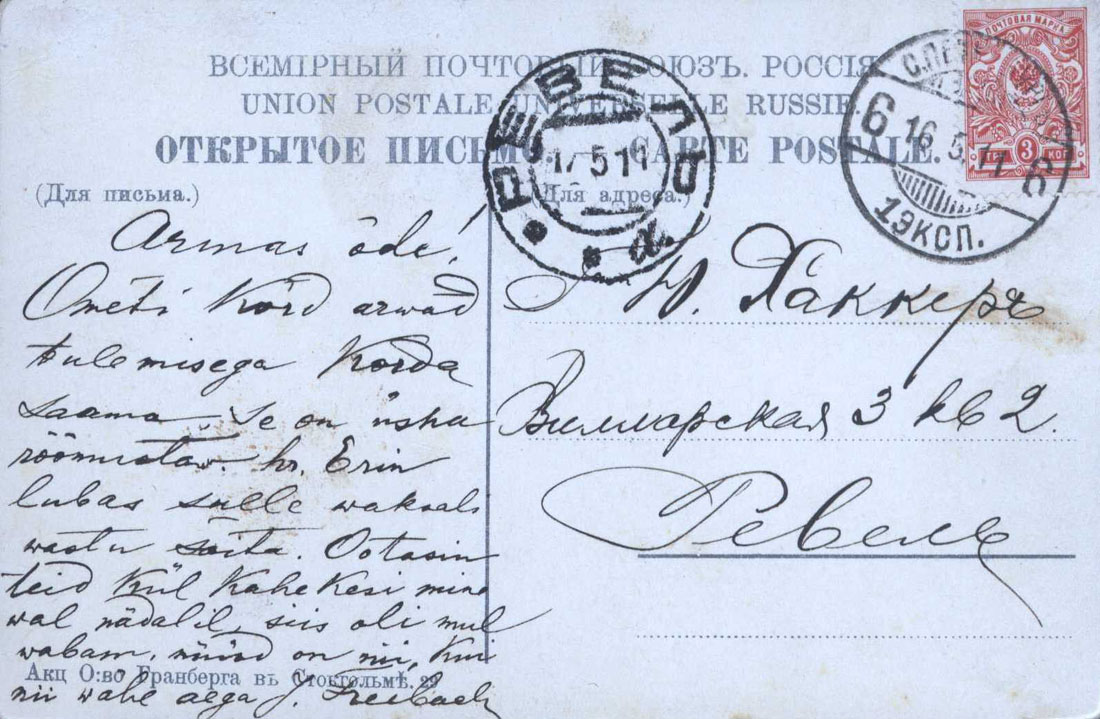 ВСЕМІРНЫЙ ПОЧТОВЫЙ СОЮЗЪ. РОССІЯ
UNION POSTALE UNIVERSELLE RUSSIE.
ОТКРЫТОЕ ПИСЬМО CARTE POSTALE.
(Для письма.)
(Для адреса.)
ПОЧТОВАЯ МАРКА
3 КОП
6 16.5.11 6
1ЭКСП.
РЕВЕЛЬ
17 5 11
Armas õde!
Ometi kõrd arwad
tulemisega korda
saama. Se on üsna
rõõmustaw. hr. Erin
lubas sulle waksali
wastu sõita. Ootasin
teid kül kahekesi mine
wal nädalil, siis oli mul
wabam, nüüd on nii, kui
nii wahe aega J.
Ю. Хаккеръ
Вилларская 3 кв 2.
Ревель
Акц О:во Гранберга въ Стокгольмѣ. 29